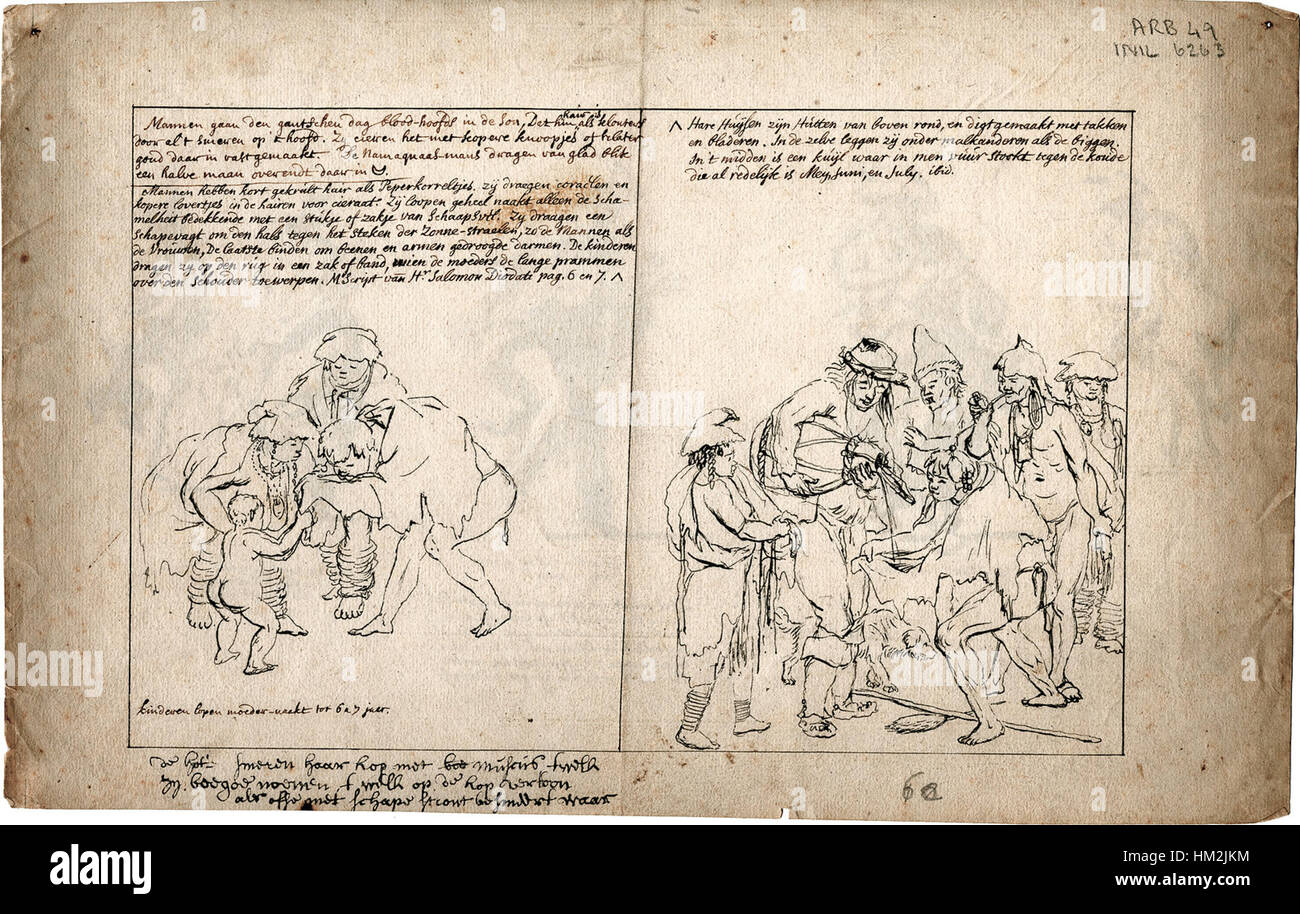 ARB 49
INIL 6263
Mannen gaan den gantschen dag blood-hoofds in de Son, Det hun hair is als klouters
door al 't smeren op 't hoofd. Zy cieren het met kopere knoopjes of klater
goud daar in vast gemaakt. De Namaquaas-mans dragen van glad blik
een halve maan overendt daar in
Mannen hebben kort gekrult hair als Peperkorreltjes. zij draegen coraelen en
kopere lovertjes in de hairen voor cieraat. Zij loopen geheel naakt alleen de Scha-
melheit bedekkende met een stukje of zakje van Schaapsvel. Zy draagen een
Schapevagt om den hals tegen het steken der Zonne-straelen, zo de Mannen als
de Vrouwen, De laatste binden om beenen en armen gedroogde darmen. De kinderen
dragen zy op den rug in een zak of band, wien de moeders de lange prammen
over den schouder toewerpen. M:Script van Hr. Salomon Diodati pag. 6 en 7. ^
^ Hare Huysen zijn Hutten van boven rond, en digt gemaakt met takken
en bladeren. In de zelve leggen zij onder malkanderen als de biggen.
In 't midden is een kuijl waar in men vuur stookt tegen de koude
die al redelijk is Mey, Juni, en July. ibid.
kinderen lopen moeder-naakt tot 6 a 7 jaar.
de hot: smeren haar kop met
zy. noemen, t welk op de kop
als off met schape stront besmeert waar
62
alamy
alamy
alamy
Image ID: HM2JKM
www.alamy.com